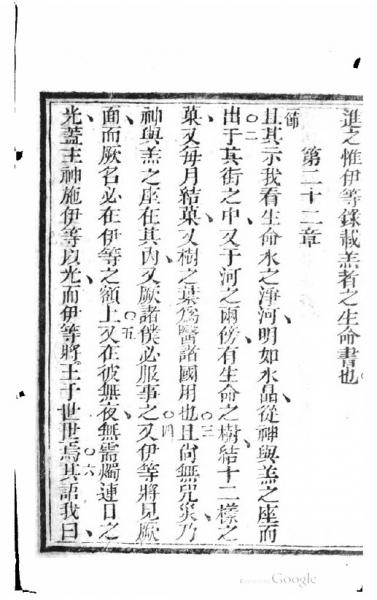 進之惟伊等錄載羔者之生命書也
第二十二章
節
且其示我看生命水之淨河明如水晶從神與羔之座而
○二
出于其街之中又于河之兩傍有生命之樹結十二樣之
菓又每月結菓又樹之葉爲醫諸國用也且尙無咒矣乃
○三
神與羔之座在其內又厥諸僕必服事之又伊等將見厥
○四
面而厥名必在伊等之額上又在彼無夜無需燭連日之
○五
光蓋主神施伊等以光而伊等將王于世世焉其語我曰
○六
Google